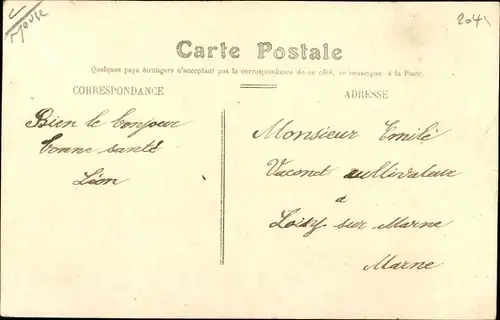 Meuse
204
Carte Postale
Quelques pays étrangers n'acceptant pas la correspondance de ce côté, se renseigner à la Poste.
CORRESPONDANCE
ADRESSE
Bien le bonjour
bonne santé
Léon
Monsieur Emile
Vaconet cultivateur
à
Loisy sur Marne
Marne